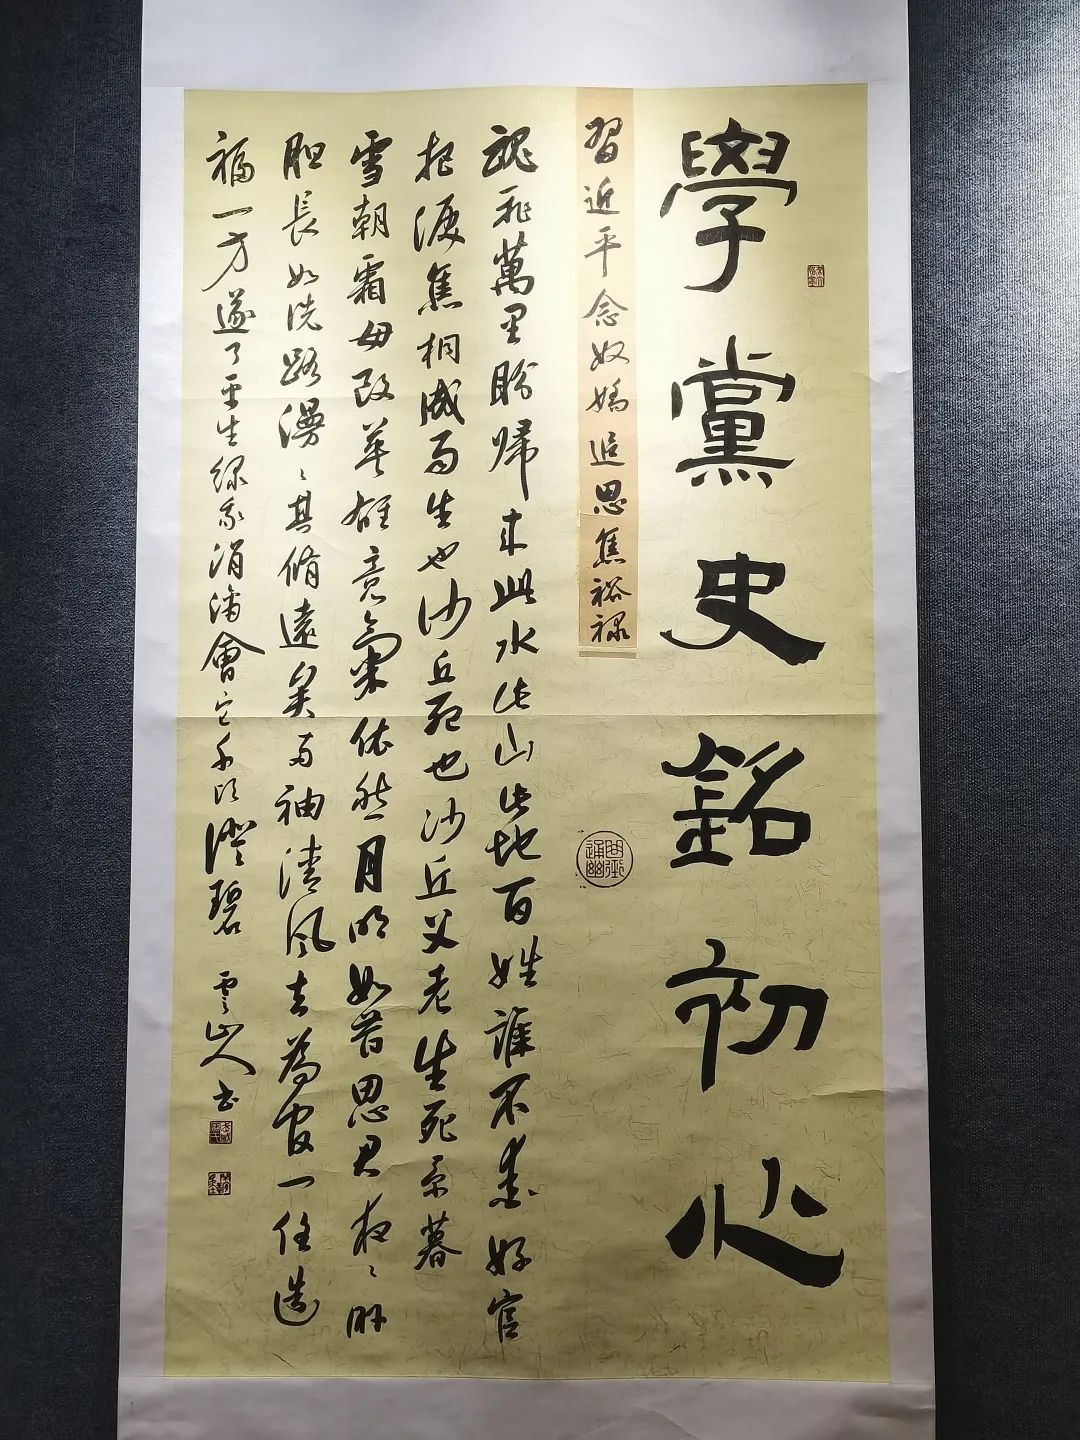 學黨史銘初心
習近平念奴嬌追思焦裕祿
魂飛萬里盼帰來此水此山此地百姓誰不愛好官
把淚焦桐成雨生也沙丘死也沙丘父老生死系暮
雪朝霜毋改英雄意氣依然月明如昔思君夜〻肝
胆長如洗路漫〻其脩遠矣兩袖清風去為官一任造
福一方遂了平生綠我涓滴會它千頃澄碧 雲山人书